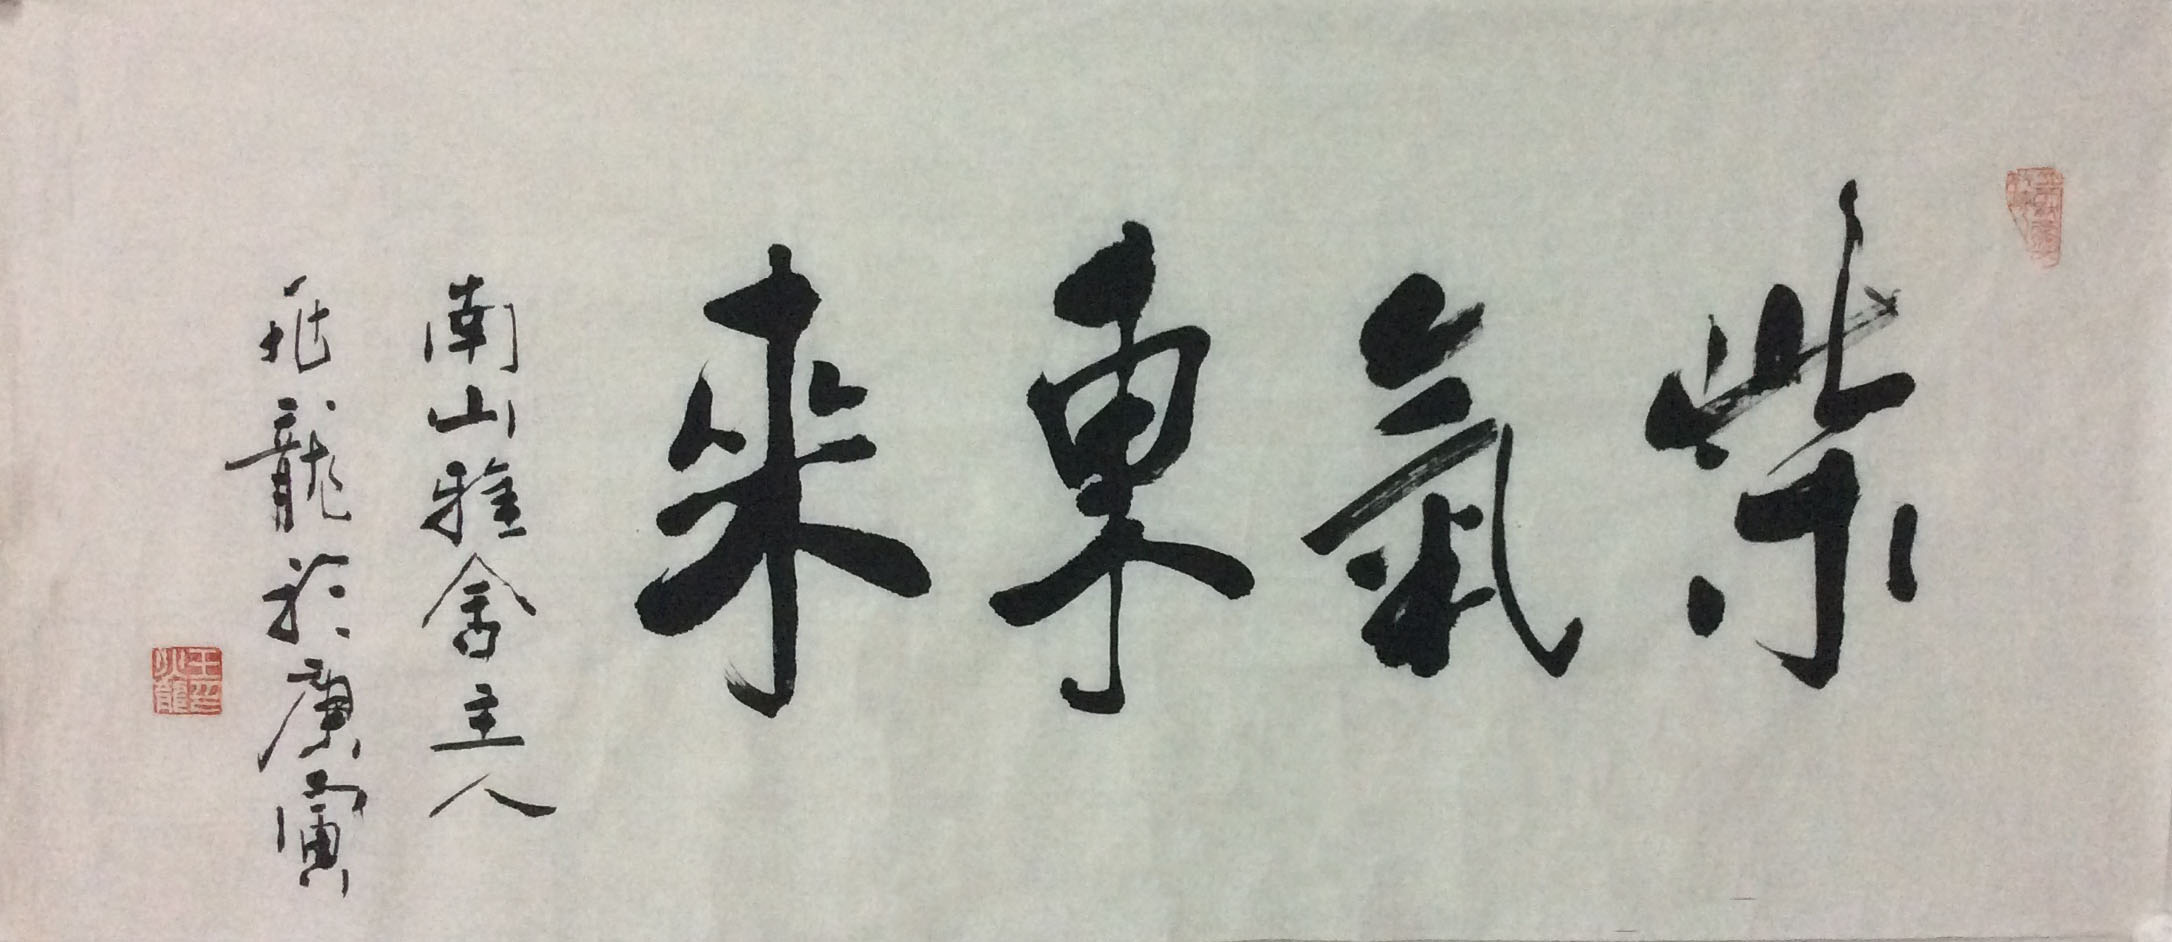 紫氣東來
南山雅舍主人
龍於庚寅
王印
龍